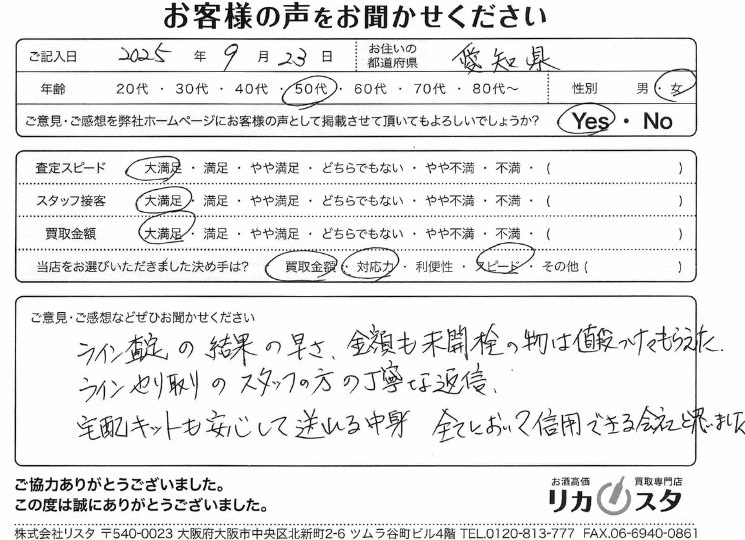 お客様の声をお聞かせください
ご記入日 2025 年 9 月 23 日 お住いの都道府県 愛知県
年齢 20代 ・ 30代 ・ 40代 ・ 50代 ・ 60代 ・ 70代 ・ 80代〜 性別 男 ・ 女
ご意見・ご感想を弊社ホームページにお客様の声として掲載させて頂いてもよろしいでしょうか? Yes ・ No
査定スピード 大満足 ・ 満足 ・ やや満足 ・ どちらでもない ・ やや不満 ・ 不満 ・ ( )
スタッフ接客 大満足 ・ 満足 ・ やや満足 ・ どちらでもない ・ やや不満 ・ 不満 ・ ( )
買取金額 大満足 ・ 満足 ・ やや満足 ・ どちらでもない ・ やや不満 ・ 不満 ・ ( )
当店をお選びいただきました決め手は? ・ 買取金額 ・ 対応力 ・ 利便性 ・ スピード ・ その他 ( )
ご意見・ご感想などぜひお聞かせください
ライン査定の結果の早さ、金額も未開栓の物は値段つけてもらえた.
ラインやり取りのスタッフの方の丁寧な返信、
宅配キットも安心して送れる中身 全てにおいて信用できる会社と思いました
ご協力ありがとうございました。
この度は誠にありがとうございました。
お酒高価 買取専門店
リカスタ
株式会社リスタ 〒540-0023 大阪府大阪市中央区北新町2-6 ツムラ谷町ビル4階 TEL.0120-813-777 FAX.06-6940-0861